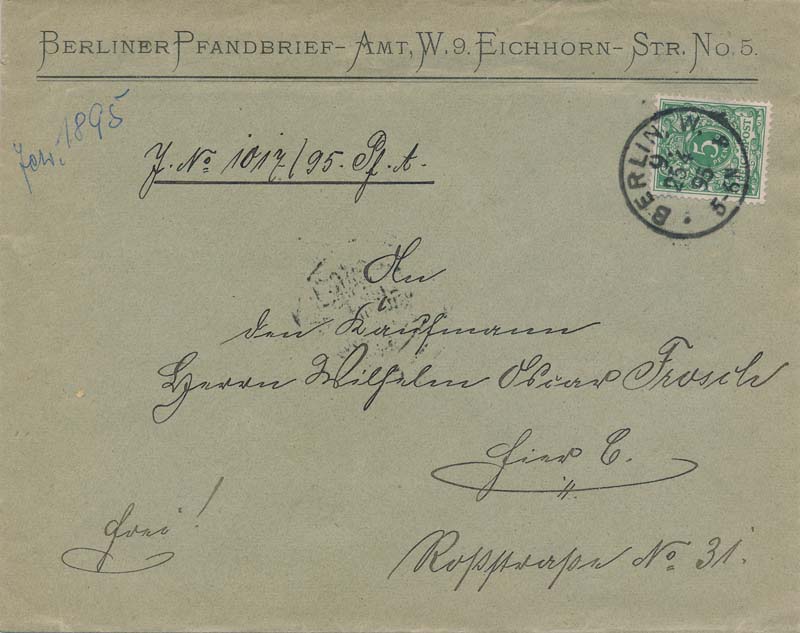 BERLINER PFANDBRIEF-AMT, W. 9. EICHHORN-STR. No. 5.
1895
J. No 1017/95. Pf. A.
BERLIN, W.
9.
25 4
95
5-6N
5
An
den Kaufmann
Herrn Wilhelm Oscar Frosch
hier C.
frei!
Roßstraße No 31.